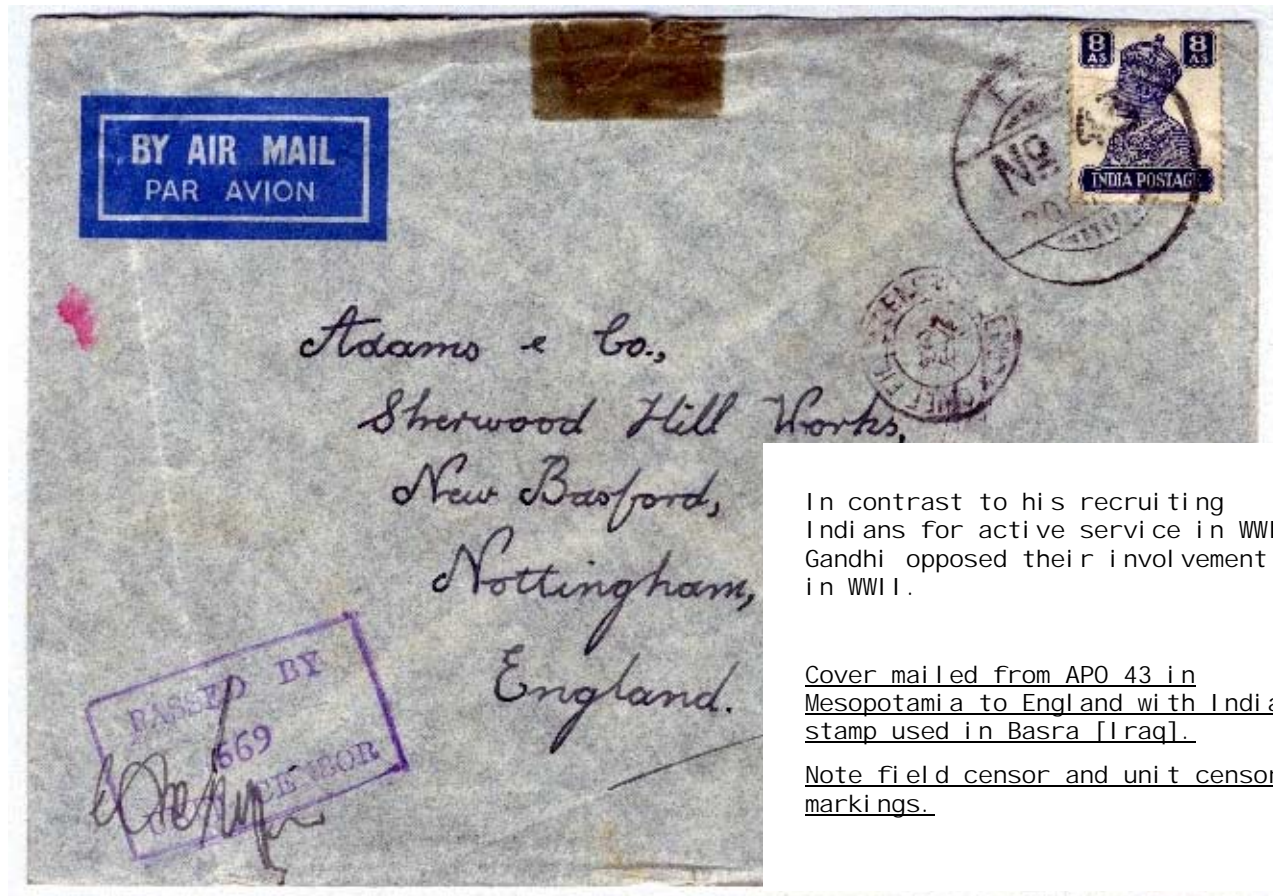 8 AS 8 AS
INDIA POSTAGE
BY AIR MAIL
PAR AVION
No
Adams & Co.,
Sherwood Hill Works,
New Basford,
Nottingham,
England.
PASSED BY
669
CENSOR
In contrast to his recruiting
Indians for active service in WWI
Gandhi opposed their involvement
in WWII.
Cover mailed from APO 43 in
Mesopotamia to England with India
stamp used in Basra [Iraq].
Note field censor and unit censor
markings.